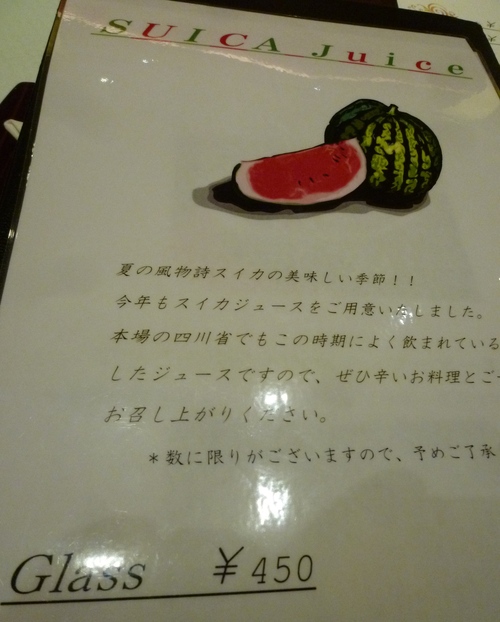 SUICA Juice
夏の風物詩スイカの美味しい季節！！
今年もスイカジュースをご用意いたしました。
本場の四川省でもこの時期によく飲まれている
したジュースですので、ぜひ辛いお料理とご一
お召し上がりください。
＊数に限りがございますので、予めご了承
Glass ￥450